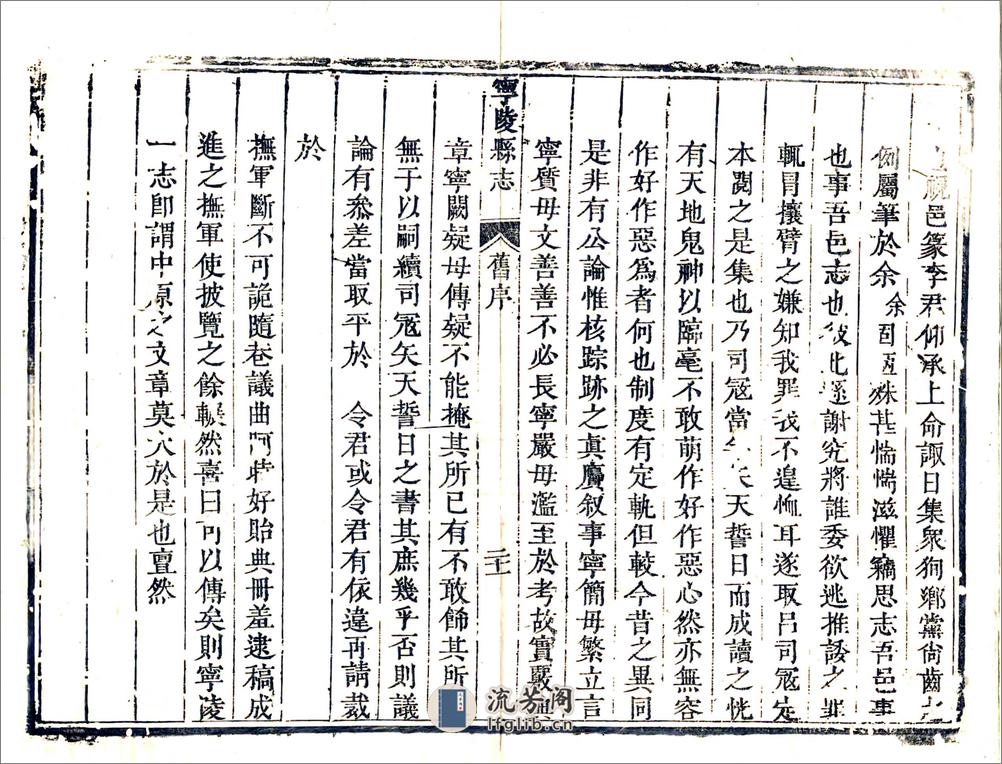 視邑篆李君仰承上命諏日集衆狥鄉黨尙齒之
例屬筆於余余固陋殊甚惴惴滋懼竊思志吾邑事
也事吾邑志也彼此遜謝究將誰委欲逃推諉之
輒冒攘臂之嫌知我罪我不遑恤耳遂取呂司寇定
本閱之是集也乃司寇當年矢天誓日而成讀之恍
有天地鬼神以臨毫不敢萌作好作惡心然亦無容
作好作惡爲者何也制度有定軌但較今昔之異同
是非有公論惟核踪跡之眞贋叙事寧簡毋繁立言
寧質毋文善善不必長寧嚴毋濫至於考故實覈
寧陵縣志
舊序
二十
章寧闕疑毋傳疑不能掩其所已有不敢飾其所
無于以嗣續司寇矢天誓日之書其庶幾乎否則議
論有叅差當取平於 令君或令君有依違再請裁
於
撫軍斷不可詭隨巷議曲阿時好貽典冊羞逮稿成
進之撫軍使披覽之餘輾然喜曰可以傳矣則寧陵
一志卽謂中原之文章莫大於是也亶然
流芳阁
lfglib.cn